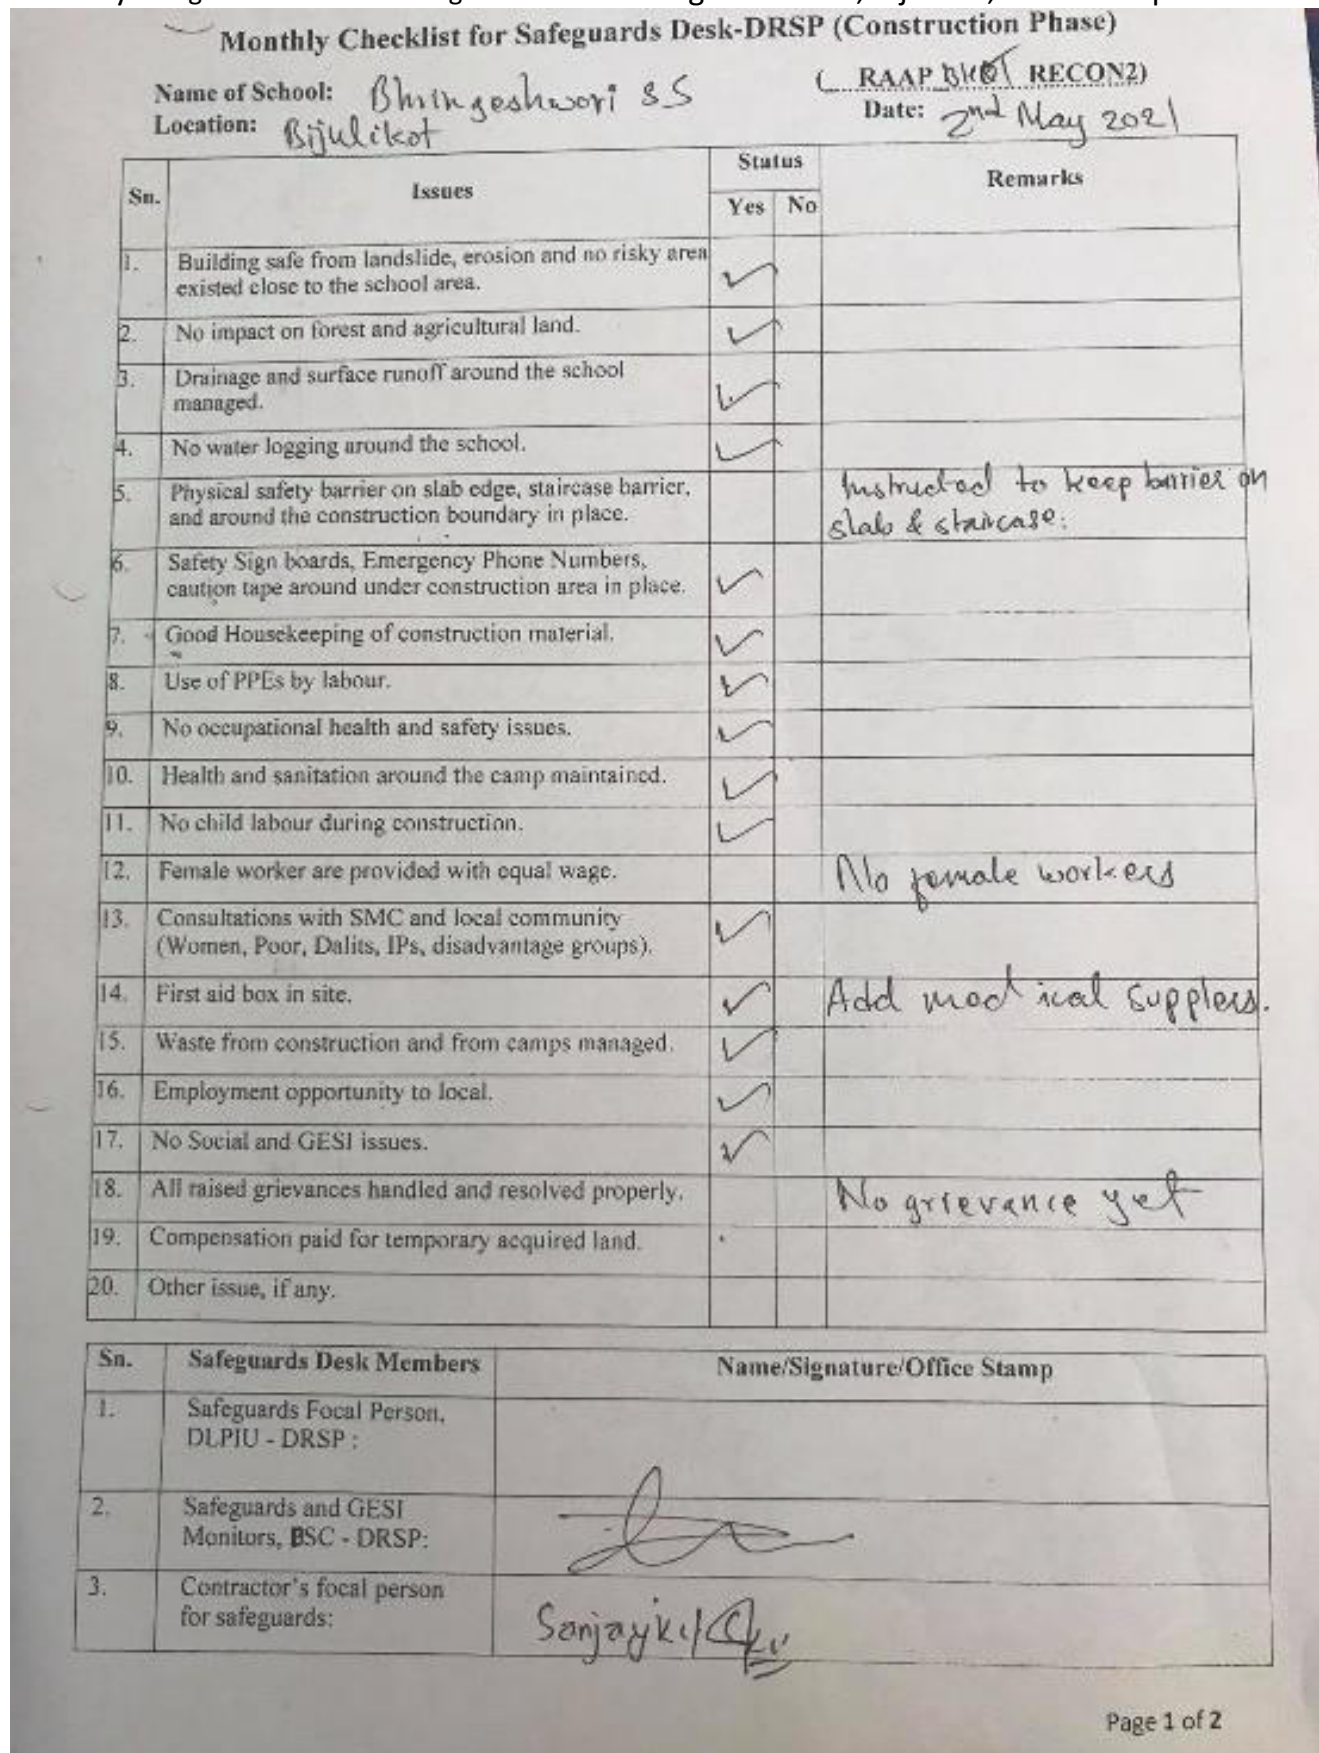 Monthly Checklist for Safeguards Desk-DRSP (Construction Phase)
Name of School: Bhringeshwori SS
( RAAP RECON2)
Location: Bijulikot
Date: 2nd May 2021
Sn. Issues Status Remarks
Yes No
1. Building safe from landslide, erosion and no risky area existed close to the school area. ✓
2. No impact on forest and agricultural land. ✓
3. Drainage and surface runoff around the school managed. ✓
4. No water logging around the school. ✓
5. Physical safety barrier on slab edge, staircase barrier, and around the construction boundary in place. Instructed to keep barrier on slab & staircase.
6. Safety Sign boards, Emergency Phone Numbers, caution tape around under construction area in place. ✓
7. Good Housekeeping of construction material. ✓
8. Use of PPEs by labour. ✓
9. No occupational health and safety issues. ✓
10. Health and sanitation around the camp maintained. ✓
11. No child labour during construction. ✓
12. Female worker are provided with equal wage. No female workers
13. Consultations with SMC and local community (Women, Poor, Dalits, IPs, disadvantage groups). ✓
14. First aid box in site. ✓ Add medical supplers.
15. Waste from construction and from camps managed. ✓
16. Employment opportunity to local. ✓
17. No Social and GESI issues. ✓
18. All raised grievances handled and resolved properly. No grievance yet
19. Compensation paid for temporary acquired land.
20. Other issue, if any.
Sn. Safeguards Desk Members Name/Signature/Office Stamp
1. Safeguards Focal Person, DLPIU - DRSP :
2. Safeguards and GESI Monitors, BSC - DRSP:
3. Contractor's focal person for safeguards:
Page 1 of 2